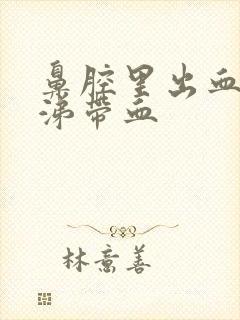 鼻腔里出血
涕带血
林意善